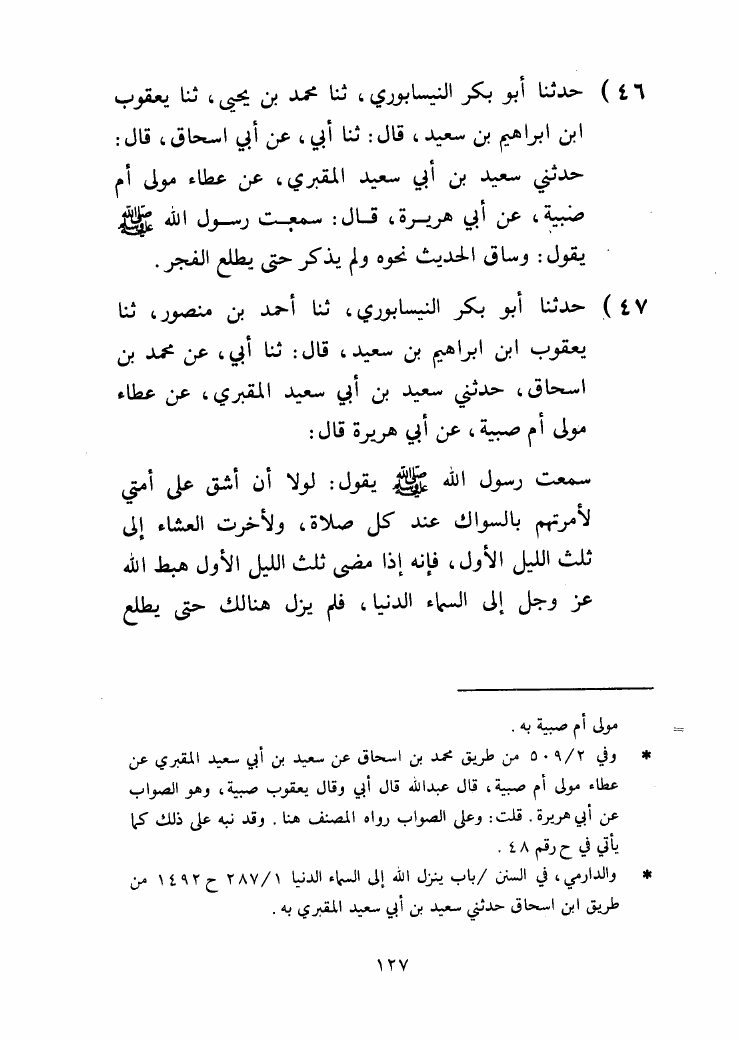 ٤٦) حدثنا أبو بكر النيسابوري، ثنا محمد بن يحيى، ثنا يعقوب
ابن ابراهيم بن سعيد، قال: ثنا أبي، عن أبي اسحاق، قال:
حدثني سعيد بن أبي سعيد المقبري، عن عطاء مولى أم
صبية، عن أبي هريرة، قال: سمعت رسول الله ﷺ
يقول: وساق الحديث نحوه ولم يذكر حتى يطلع الفجر.
٤٧) حدثنا أبو بكر النيسابوري، ثنا أحمد بن منصور، ثنا
يعقوب ابن ابراهيم بن سعيد، قال: ثنا أبي، عن محمد بن
اسحاق، حدثني سعيد بن أبي سعيد المقبري، عن عطاء
مولى أم صبية، عن أبي هريرة قال:
سمعت رسول الله ﷺ يقول: لولا أن أشق على أمتي
لأمرتهم بالسواك عند كل صلاة، ولأخرت العشاء إلى
ثلث الليل الأول، فإنه إذا مضى ثلث الليل الأول هبط الله
عز وجل إلى السماء الدنيا، فلم يزل هنالك حتى يطلع
= مولى أم صبية به.
* وفي ٥٠٩/٢ من طريق محمد بن اسحاق عن سعيد بن أبي سعيد المقبري عن
عطاء مولى أم صبية، قال عبدالله قال أبي وقال يعقوب صبية، وهو الصواب
عن أبي هريرة. قلت: وعلى الصواب رواه المصنف هنا. وقد نبه على ذلك كما
يأتي في ح رقم ٤٨.
* والدارمي، في السنن /باب ينزل الله إلى السماء الدنيا ٢٨٧/١ ح ١٤٩٢ من
طريق ابن اسحاق حدثني سعيد بن أبي سعيد المقبري به.
١٢٧